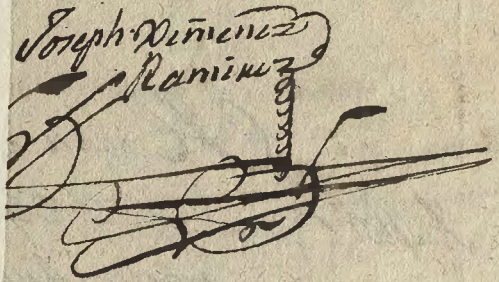 Joseph Ximenez
Ramirez